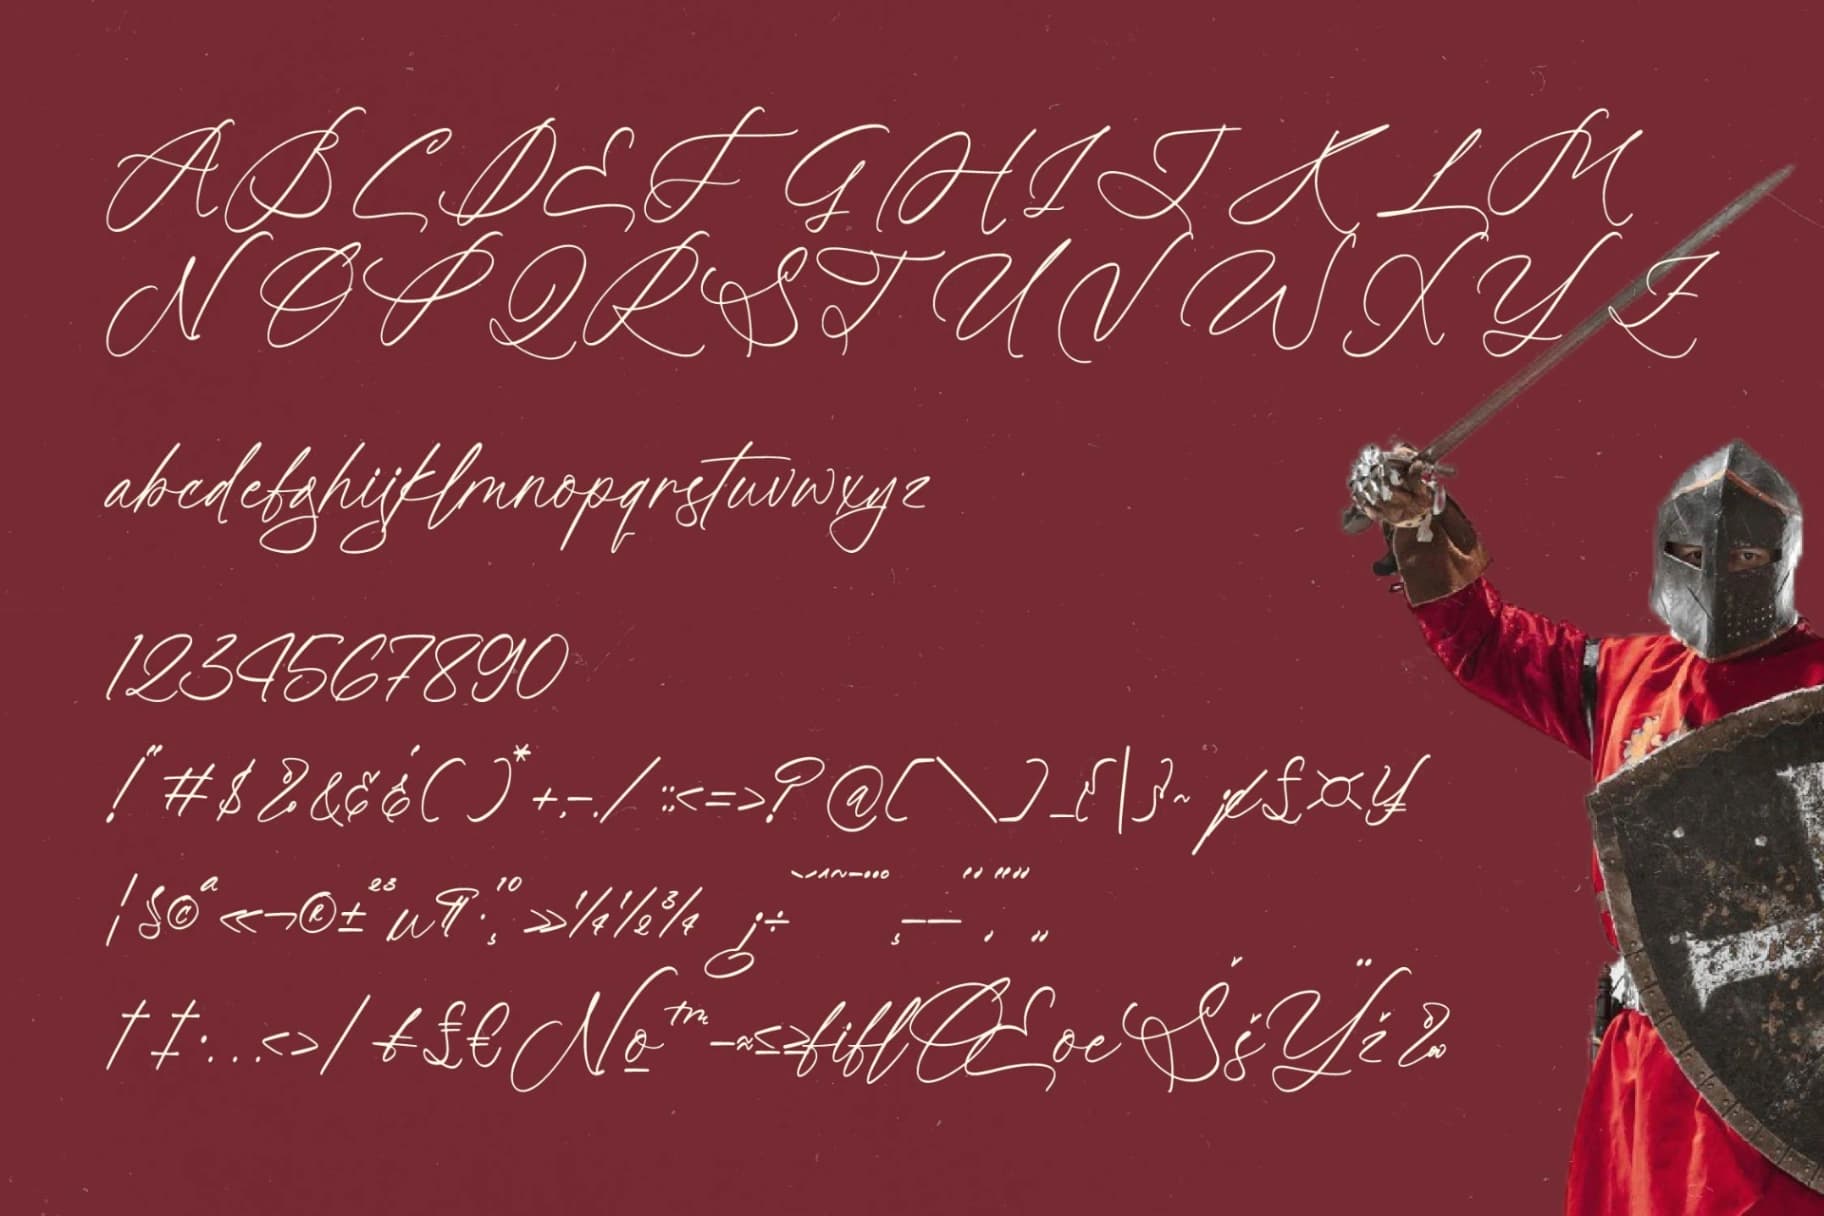 ABCDEFGHIJKLM
NOPQRSTUVWXYZ
abcdefghijklmnopqrstuvwxyz
1234567890
!"#$%&'()*+,-./:;<=>?@[\]_{|}~¡¢£¤¥
¦§©ª«¬®±²³µ¶·¸¹º»¼½¾¿÷
†‡•…‹›⁄₣₤€№™−≈≤≥fiflŒœŠšŸž‰